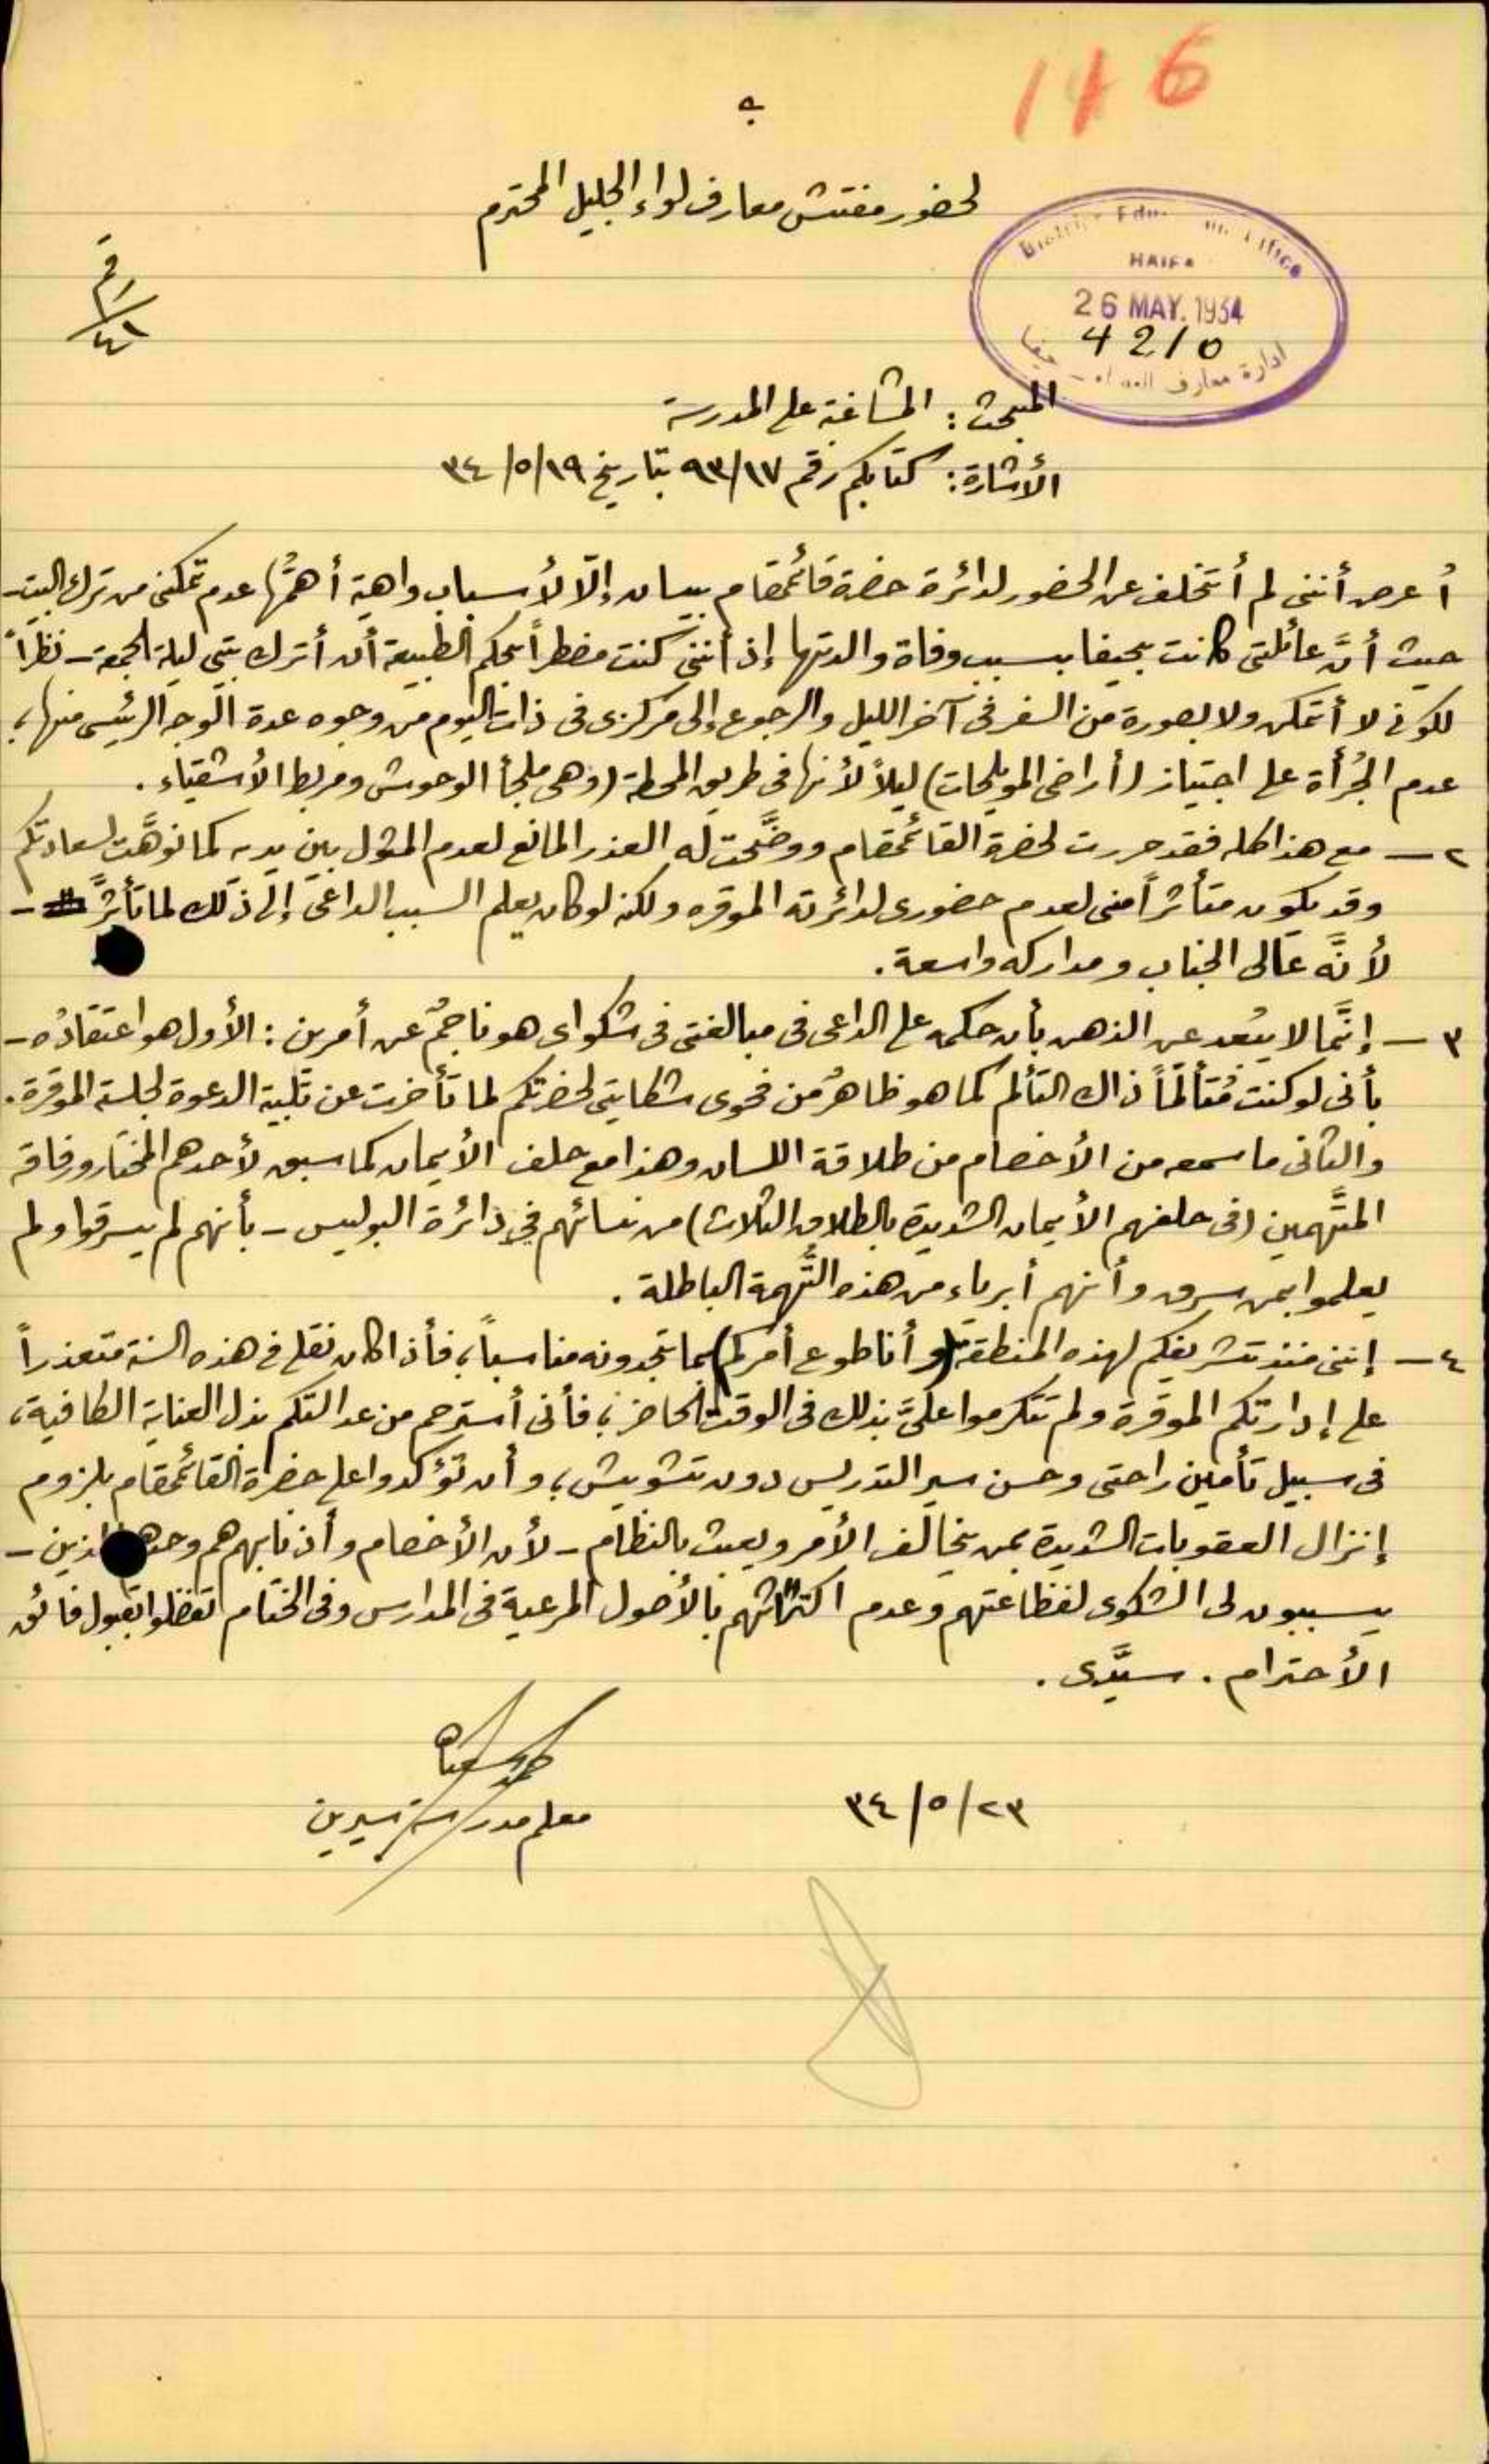 116
لحضور مفتش معارف لواء الجليل المحترم
District Education Office
HAIFA
26 MAY. 1934
4210
ادارة معارف اللواء - حيفا
رقم
٤١
المبحث: المشاغبة على المدرسة
الأشارة: كتابكم رقم ٩٣/١٧ بتاريخ ٣٤/٥/١٩
أعرض أنني لم أتخلف عن الحضور لدائرة حضرة قائمقام بيسان إلّا لأسباب واهية أهمُّها عدم تمكني من ترك البيت -
حيث أنَّ عائلتي كانت بحيفا بسبب وفاة والدتها إذ أنني كنت مضطراً بحكم الطبيعة أن أترك بيتي ليلة الجمعة - نظراً
لكوني لا أتمكن ولا بصورة من السفر في آخر الليل والرجوع إلى مركزي في ذات اليوم من وجوه عدة الوجه الرئيسي منها،
عدم الجُرأة على اجتياز (أراضي المويلحات) ليلاً لأنها في طريق المحطة (وهي ملجأ الوحوش ومربط الأشقياء.
٢ - مع هذا كله فقد حررت لحضرة القائمقام ووضَّحت له العذر المانع لعدم المثول بين يديه كما نوهَّت لسعادتكم
وقد يكون متأثراً مني لعدم حضوري لدائرته الموقره ولكنه لو كان يعلم السبب الداعي إلى ذلك لما تأثرَّ -
لأنَّه عالي الجناب ومداركه واسعة.
٣ - إنَّما لا يبُعد عن الذهن بأن حكمه على الداعي في مبالغتي في شكواي هو ناجمٌ عن أمرين: الأول هو اعتقادُه -
بأني لو كنت مُتألمّاً ذاك التألم كما هو ظاهرٌ من فحوى شكايتي لحضرتكم لما تأخرت عن تلبية الدعوة لجلسته الموقرة.
والثاني ما سمعه من الأخصام من طلاقة اللسان وهذا مع حلف الأيمان كما سبق لأحدهم المختار ورفاقه
المتَّهمين (في حلفهم الأيمان الشديدة بالطلاق الثلاث) من نسائهم في دائرة البوليس - بأنهم لم يسرقوا ولم
يعلموا بمن سرق وأنهم أبرياء من هذه التُّهمة الباطلة.
٤ - إنني منذ تشريفكم لهذه المنطقة (وأنا طوع أمركم) بما تجدونه مناسباً، فأذا كان نقلي في هذه السنة متعذراً
على إدارتكم الموقرة ولم تتكرموا عليَّ بذلك في الوقت الحاضر، فأني أسترحم من عدالتكم بذل العناية الكافية،
في سبيل تأمين راحتي وحسن سير التدريس دون تشويش، وأن تؤكدوا على حضرة القائمقام بلزوم
إنزال العقوبات الشديدة بمن يخالف الأمر ويعبث بالنظام - لأن الأخصام وأذنابهم هم وحدهم الذين -
يسببون لي الشكوى لفظاعتهم وعدم اكتراثهم بالأصول المرعية في المدارس وفي الختام تفضلوا بقبول فائق
الأحترام. سيَّدي.
٣٤/٥/٢٣
معلم مدرسة سيرين